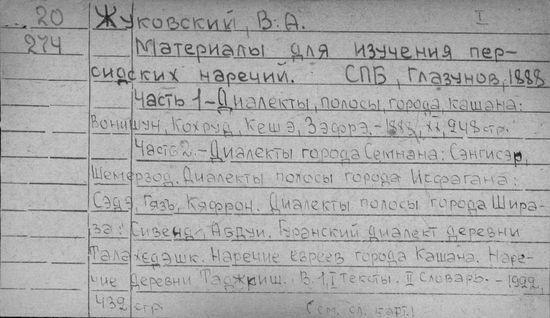 20 Жуковский, В. А. I
274 Материалы для изучения пер-
сидских наречий. СПБ, Глазунов, 1888
Часть 1 - Диалекты, полосы, города, кашана:
Вонишун, Кохруд, Кешэ, Зэфрэ. - 1888, XX, 248 стр.
Часть 2. - Диалекты города Семнана: Сэнгисэр,
Шемерзод. Диалекты полосы города Исфагана:
Сэдэ, Гязъ, Кяфрон. Диалекты полосы города Шира-
за: Сивенд, Абдуи. Гуранский диалект деревни
Талахедэшк. Наречие евреев города Кашана. Наре-
чие деревни Таджриш. В. 1, I Тексты. II Словарь. - 1922,
432 стр. (см. сл. карт.)